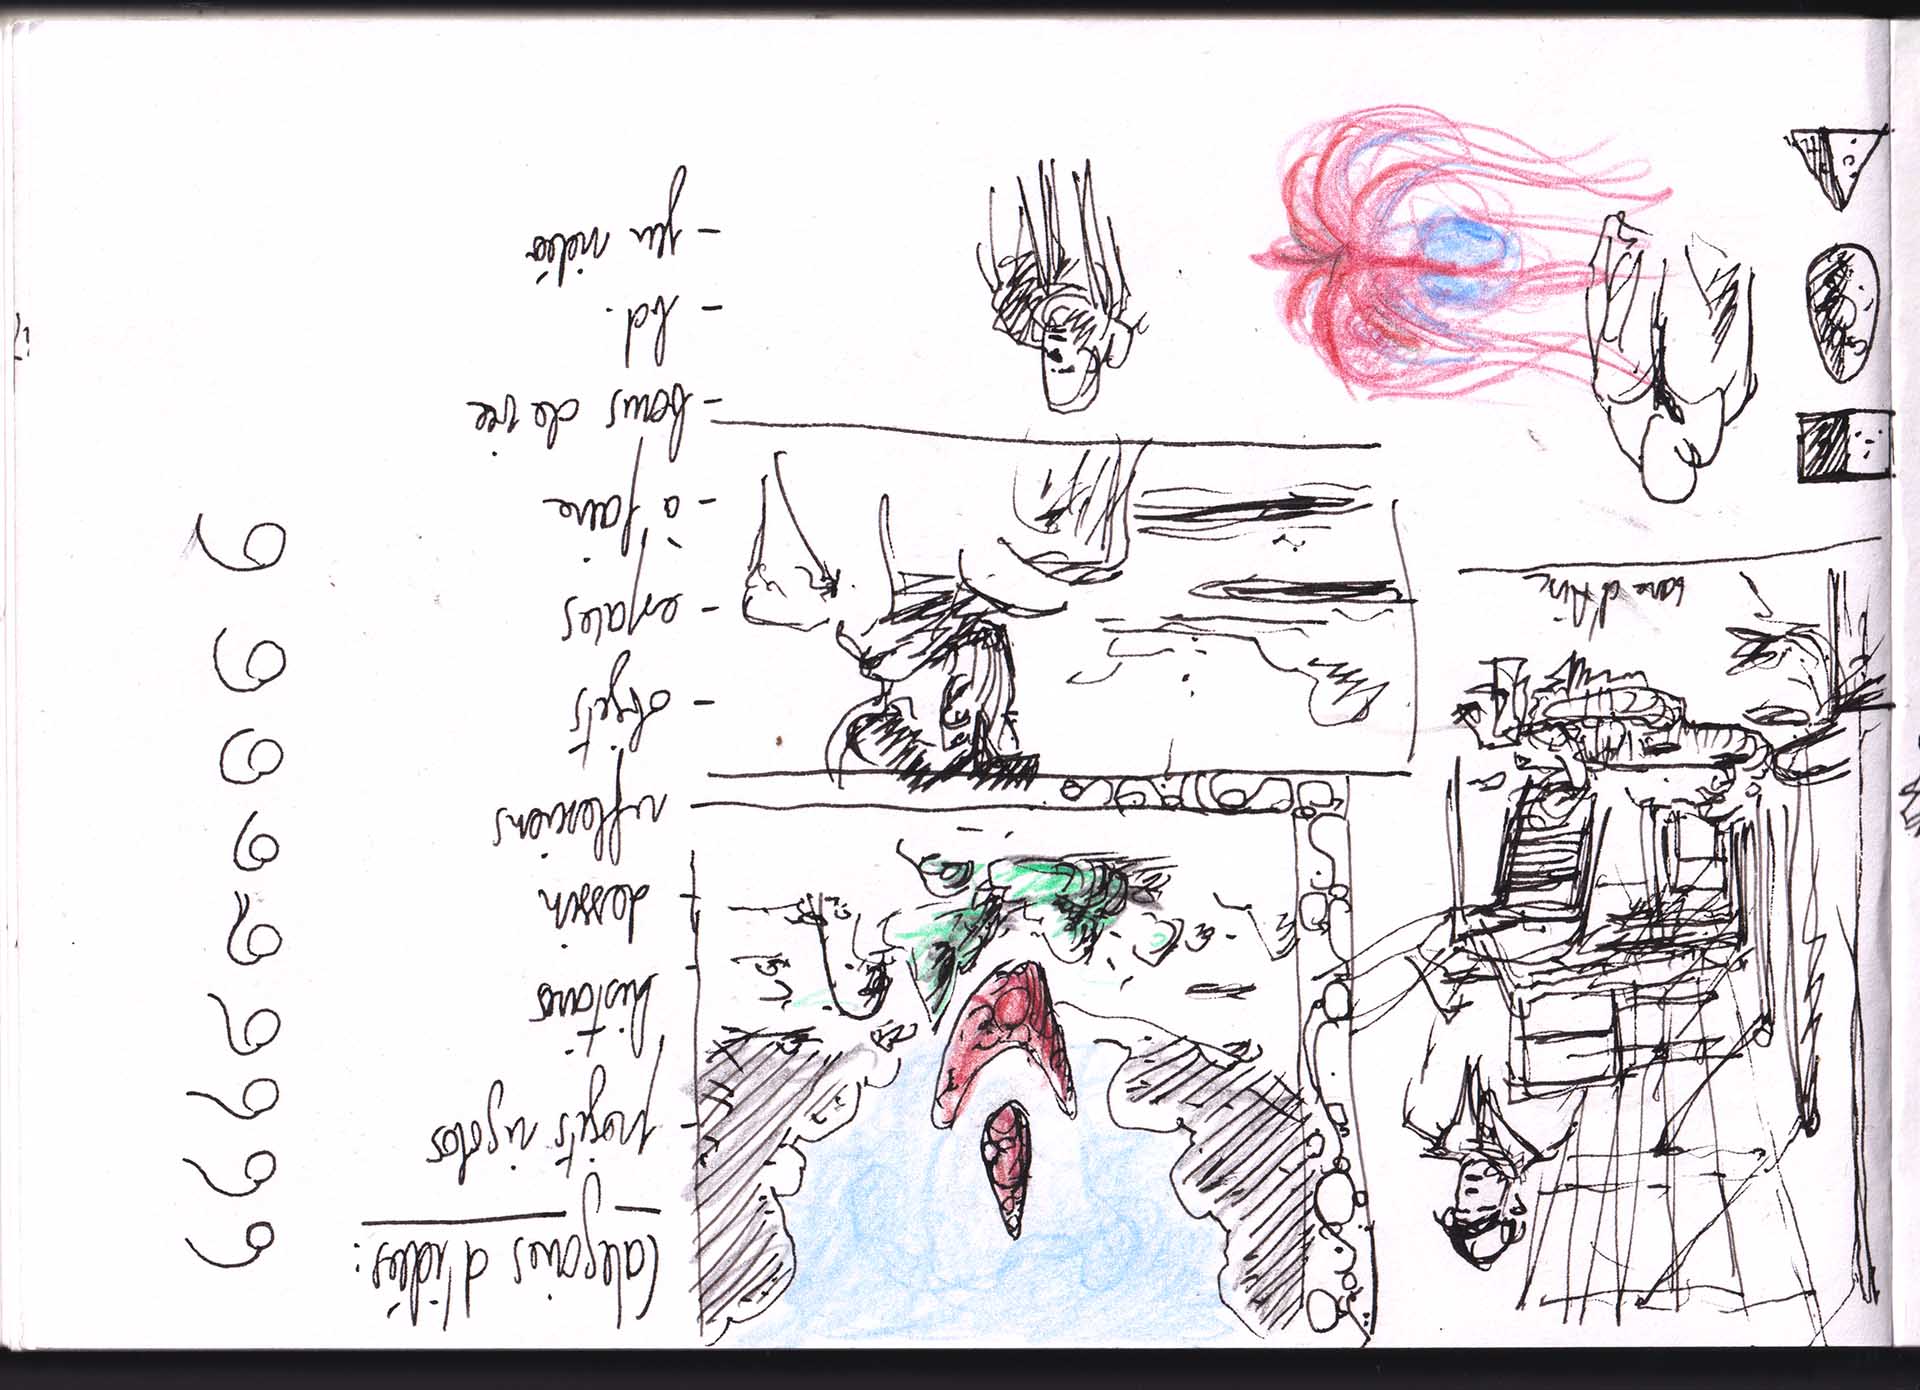 Categories d'idées:
- projets rigolos
- histoires
- dessin
reflexions
- objets
- espaces
- à faire
- bonus de vie
- bd.
- jeu vidéo